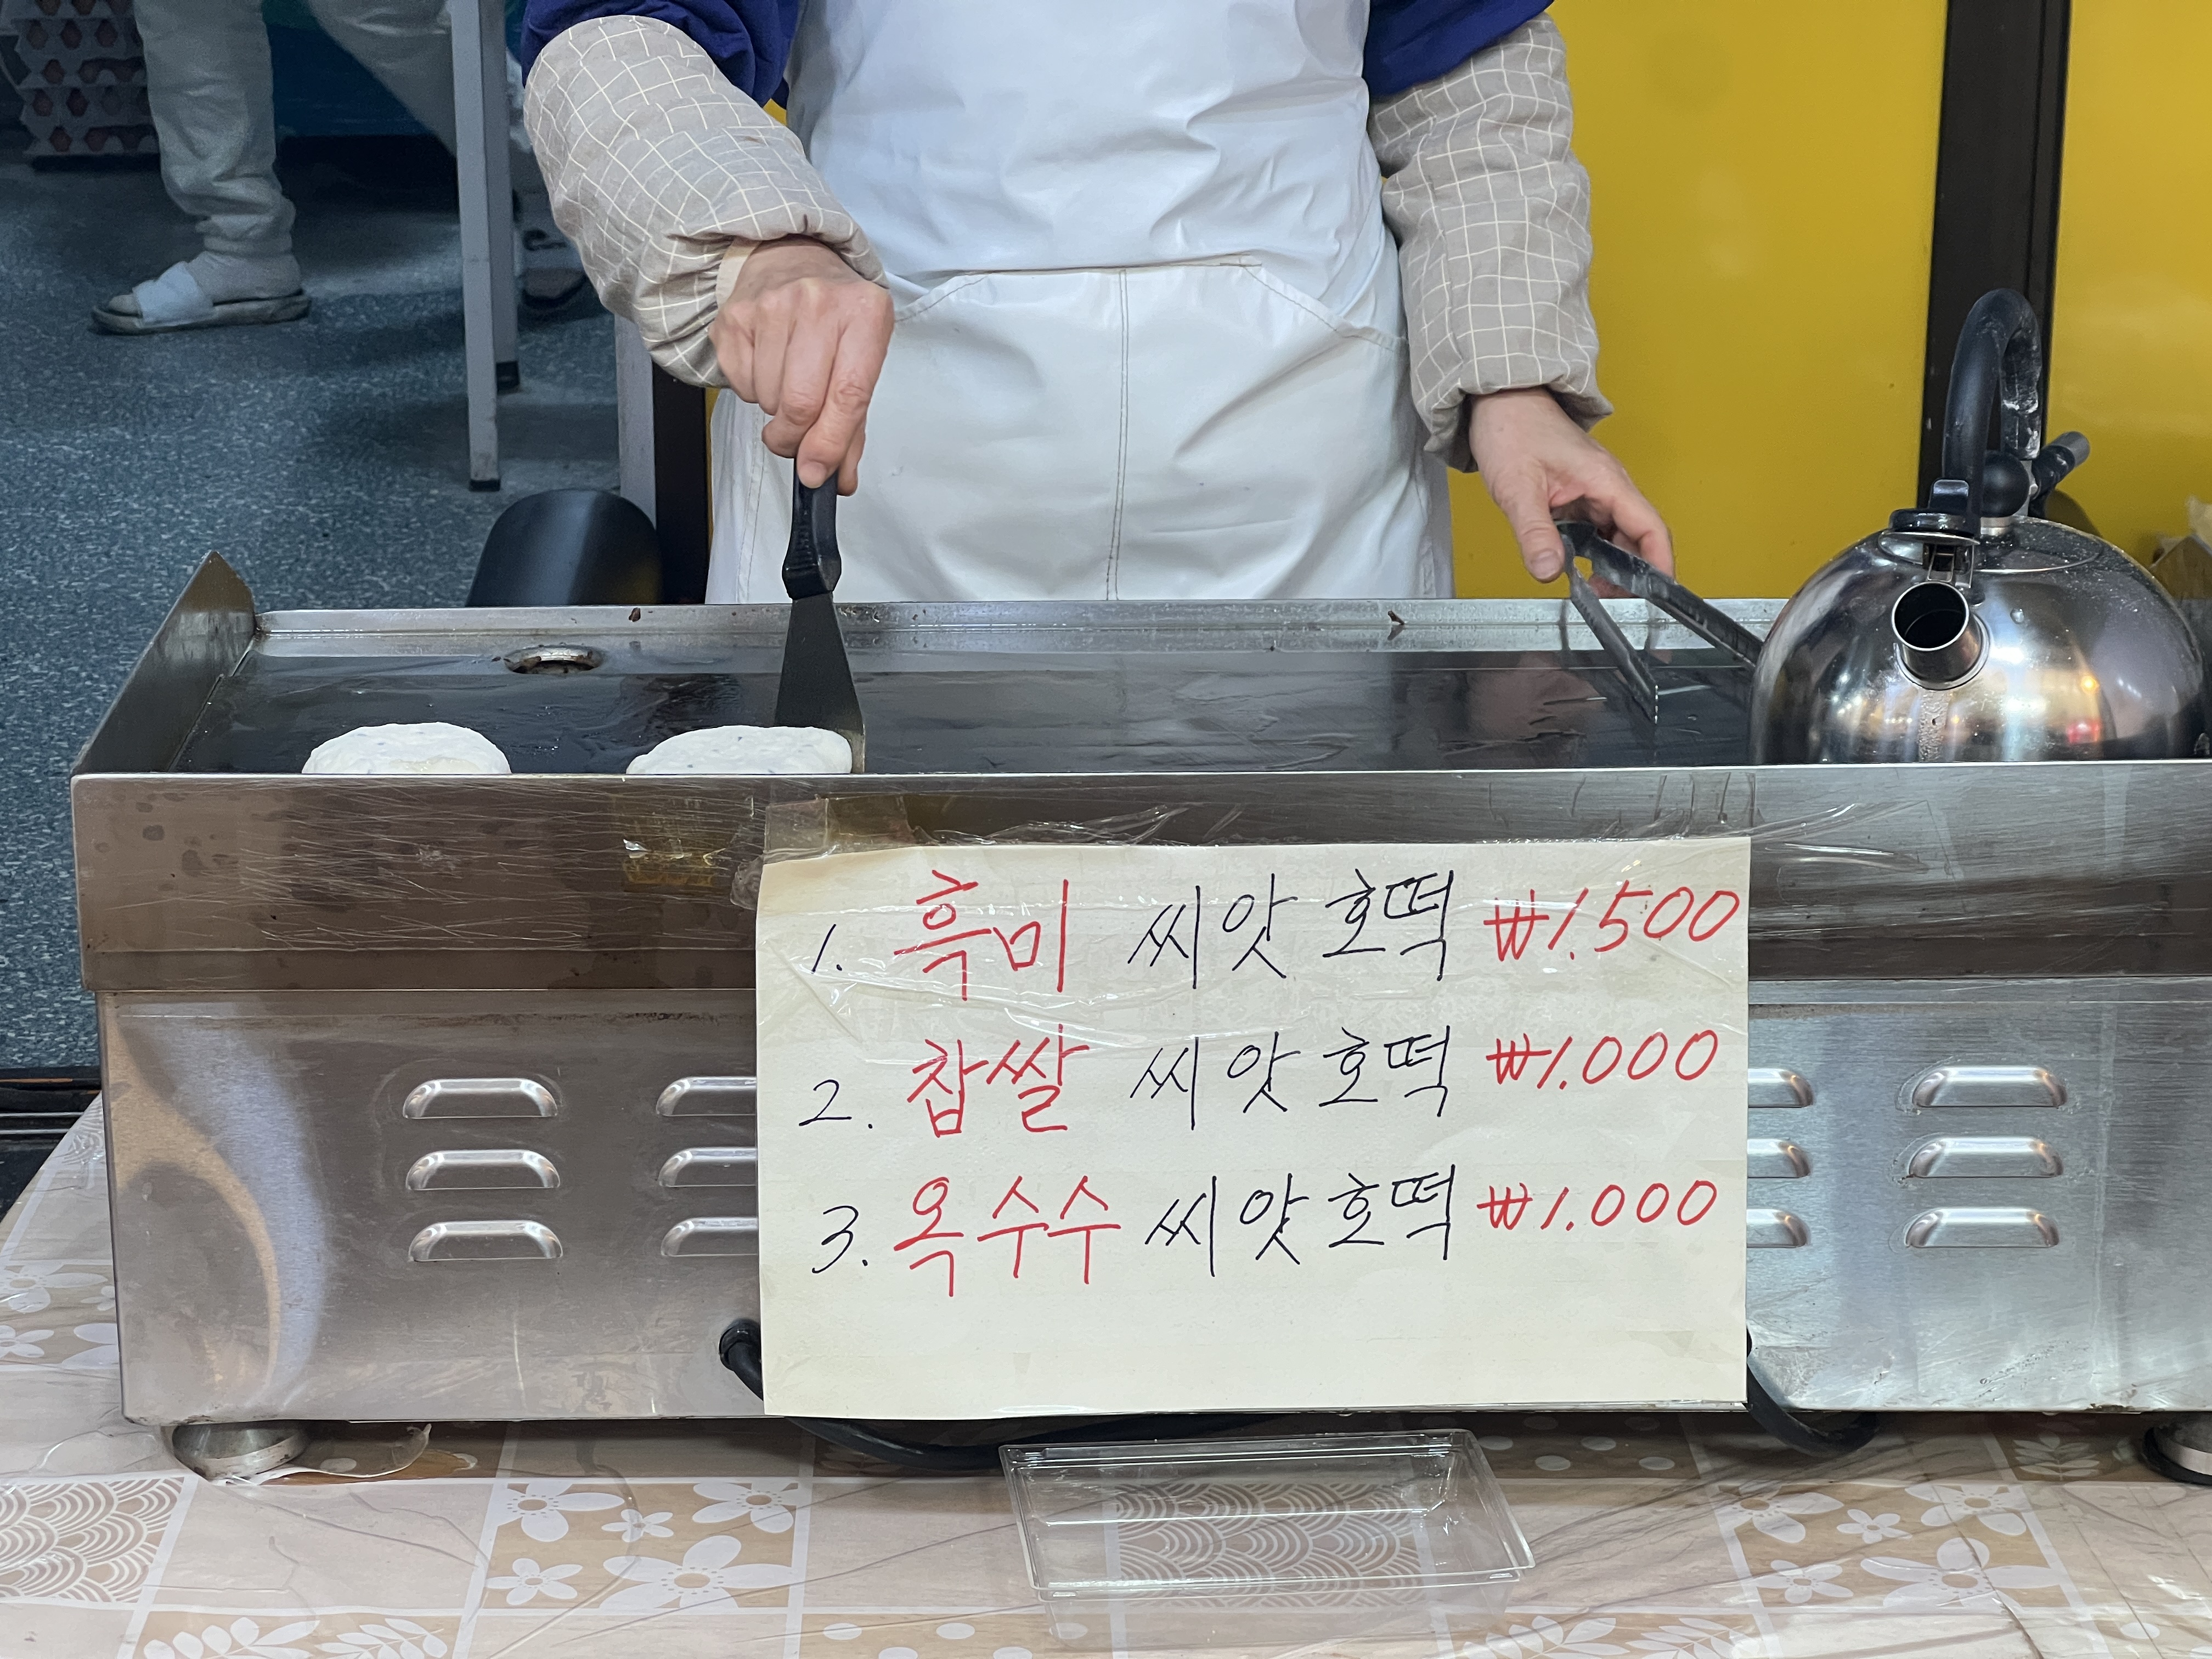 1. 흑미 씨앗 호떡 ₩1.500
2. 찹쌀 씨앗 호떡 ₩1.000
3. 옥수수 씨앗 호떡 ₩1.000